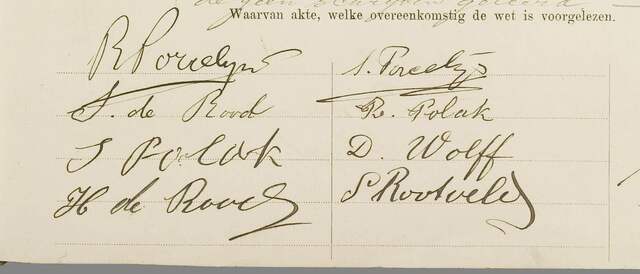 Waarvan akte, welke overeenkomstig de wet is voorgelezen.
R Porcelijn S. Porcelijn
S. de Rood R. Polak
S Polak D. Wolff
H de Rood S Rootveld